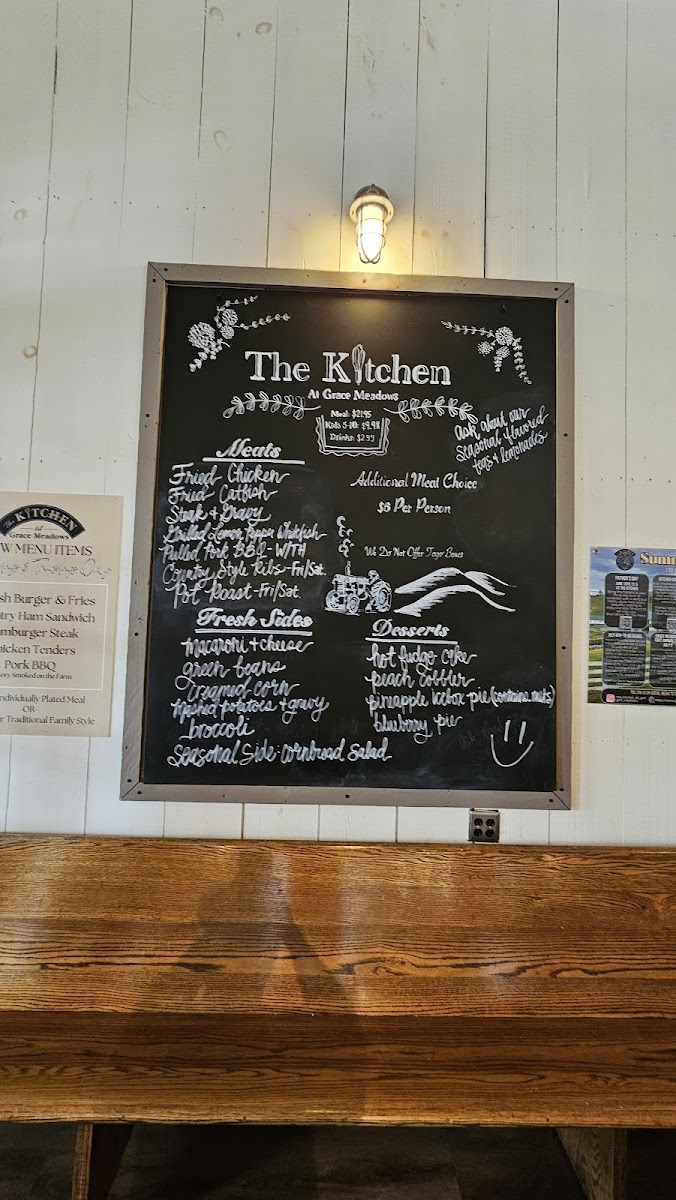 The Kitchen
At Grace Meadows
Meal: $21.95
Kids 5-10: $9.98
Drinks: $2.99
Ask about our
seasonal flavored
teas + lemonades
Meats
Fried Chicken
Fried Catfish
Steak + Gravy
Grilled Lemon Pepper Whitefish
Pulled Pork BBQ - W/TH
Country Style Ribs - Fri/Sat.
Pot Roast - Fri/Sat.
Additional Meat Choice
$8 Per Person
We Do Not Offer Togo Boxes
Fresh Sides
macaroni + cheese
green beans
creamed corn
mashed potatoes + gravy
broccoli
Seasonal Side: cornbread salad
Desserts
hot fudge cake
peach cobbler
pineapple icebox pie (contains nuts)
blueberry pie
The KITCHEN
at
Grace Meadows
W MENU ITEMS
sh Burger & Fries
ntry Ham Sandwich
mburger Steak
hicken Tenders
Pork BBQ
kory Smoked on the Farm
ndividually Plated Meal
-OR-
r Traditional Family Style
Summ
FATHER'S DAY